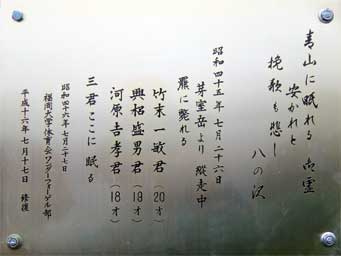 青山に眠れる 御霊
安かれと
挽歌も悲し
八の沢
昭和四十五年七月二十六日
芽室岳より 縦走中
羆に斃れる
竹末一敏君（20才）
興梠盛男君（19才）
河原吉孝君（18才）
三君ここに眠る
昭和四十六年七月二十七日
福岡大学体育会ワンダーフォーゲル部
平成十六年七月十七日 修復